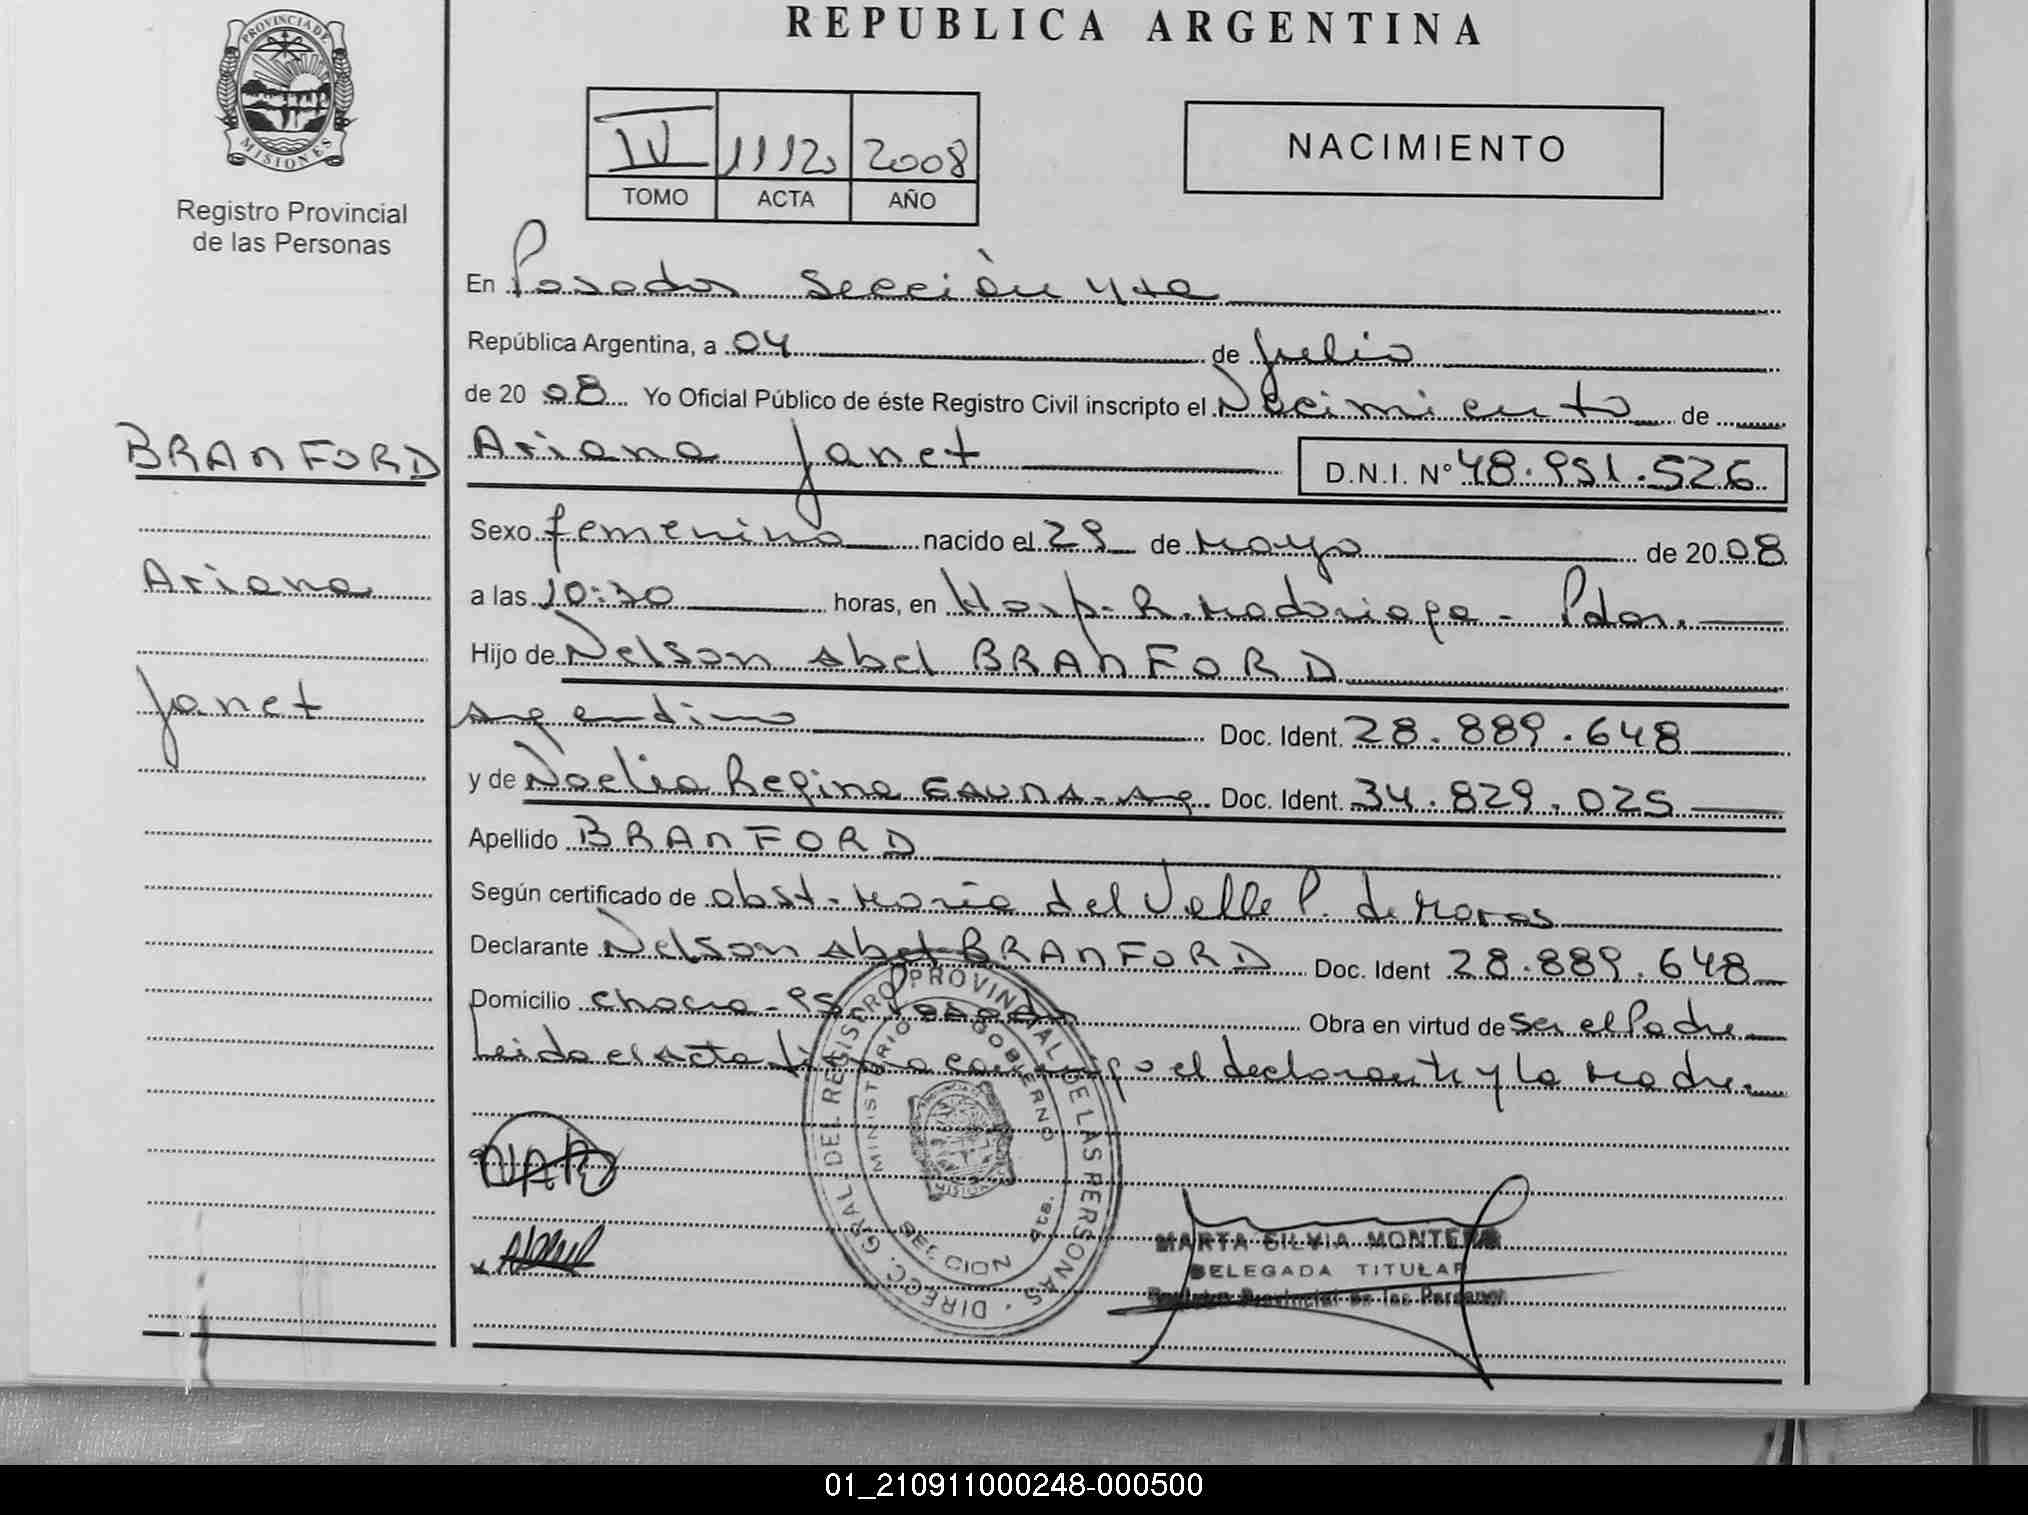 REPUBLICA ARGENTINA
PROVINCIA DE
MISIONES
Registro Provincial
de las Personas
IV 1112 2008
TOMO ACTA AÑO
NACIMIENTO
En Posadas Sección 4ta
República Argentina, a 04 de Julio
de 20 08 Yo Oficial Público de éste Registro Civil inscripto el Nacimiento de
BRANFORD
Ariana Janet D.N.I. Nº 48.951.526
Sexo femenino nacido el 29 de Mayo de 20 08
Ariana
a las 10:30 horas, en Hosp. R. Madariaga - Pdas.
Hijo de Nelson Abel BRANFORD
Janet
Argentino Doc. Ident. 28.889.648
y de Noelia Regina GAUNA - Arg. Doc. Ident. 34.829.025
Apellido BRANFORD
Según certificado de obst. María del Valle P. de Moras
Declarante Nelson Abel BRANFORD Doc. Ident 28.889.648
Domicilio chacra - Posadas Obra en virtud de Ser el Padre
Leida el acta firma conmigo el declarante y la Madre.
DIRECC. GRAL. DEL REGISTRO PROVINCIAL DE LAS PERSONAS
MINISTERIO GOBIERNO
SECCION 4ta.
MISIONES
NAB
MARTA SILVIA MONTERO
DELEGADA TITULAR
Registro Provincial de las Personas
01_210911000248-000500